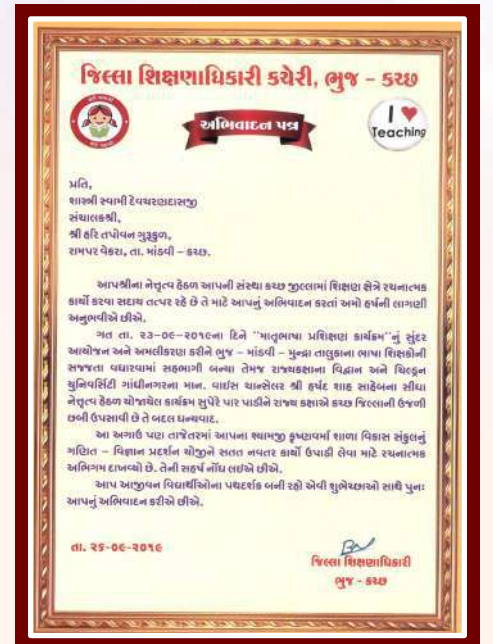 જિલ્લા શિક્ષણાધિકારી કચેરી, ભુજ – કચ્છ
અભિવાદન પત્ર
I ♥
Teaching
પ્રતિ,
શાસ્ત્રી સ્વામી દેવચરણદાસજી
સંચાલકશ્રી,
શ્રી હરિ તપોવન ગુરૂકુળ,
રામપર વેકરા, તા. માંડવી – કચ્છ.
આપશ્રીના નેતૃત્વ હેઠળ આપની સંસ્થા કચ્છ જીલ્લામાં શિક્ષણ ક્ષેત્રે રચનાત્મક
કાર્યો કરવા સદાય તત્પર રહે છે તે માટે આપનું અભિવાદન કરતાં અમો હર્ષની લાગણી
અનુભવીએ છીએ.
ગત તા. ૨૩-૦૯-૨૦૧૯ના દિને "માતૃભાષા પ્રશિક્ષણ કાર્યક્રમ"નું સુંદર
આયોજન અને અમલીકરણ કરીને ભુજ – માંડવી – મુન્દ્રા તાલુકાના ભાષા શિક્ષકોની
સજ્જતા વધારવામાં સહભાગી બન્યા તેમજ રાજ્યકક્ષાના વિદ્વાન અને ચિલ્ડ્રન
યુનિવર્સિટી ગાંધીનગરના માન. વાઈસ ચાન્સેલર શ્રી હર્ષદ શાહ સાહેબના સીધા
નેતૃત્વ હેઠળ યોજાયેલ કાર્યક્રમ સુપેરે પાર પાડીને રાજ્ય કક્ષાએ કચ્છ જિલ્લાની ઉજળી
છબી ઉપસાવી છે તે બદલ ધન્યવાદ.
આ અગાઉ પણ તાજેતરમાં આપના શ્યામજી કૃષ્ણવર્મા શાળા વિકાસ સંકુલનું
ગણિત – વિજ્ઞાન પ્રદર્શન યોજીને સતત નવતર કાર્યો ઉપાડી લેવા માટે રચનાત્મક
અભિગમ દાખવ્યો છે. તેની સહર્ષ નોંધ લઇએ છીએ.
આપ આજીવન વિદ્યાર્થીઓના પથદર્શક બની રહો એવી શુભેચ્છાઓ સાથે પુનઃ
આપનું અભિવાદન કરીએ છીએ.
તા. ૨૬-૦૯-૨૦૧૯
જિલ્લા શિક્ષણાધિકારી
ભુજ - કચ્છ